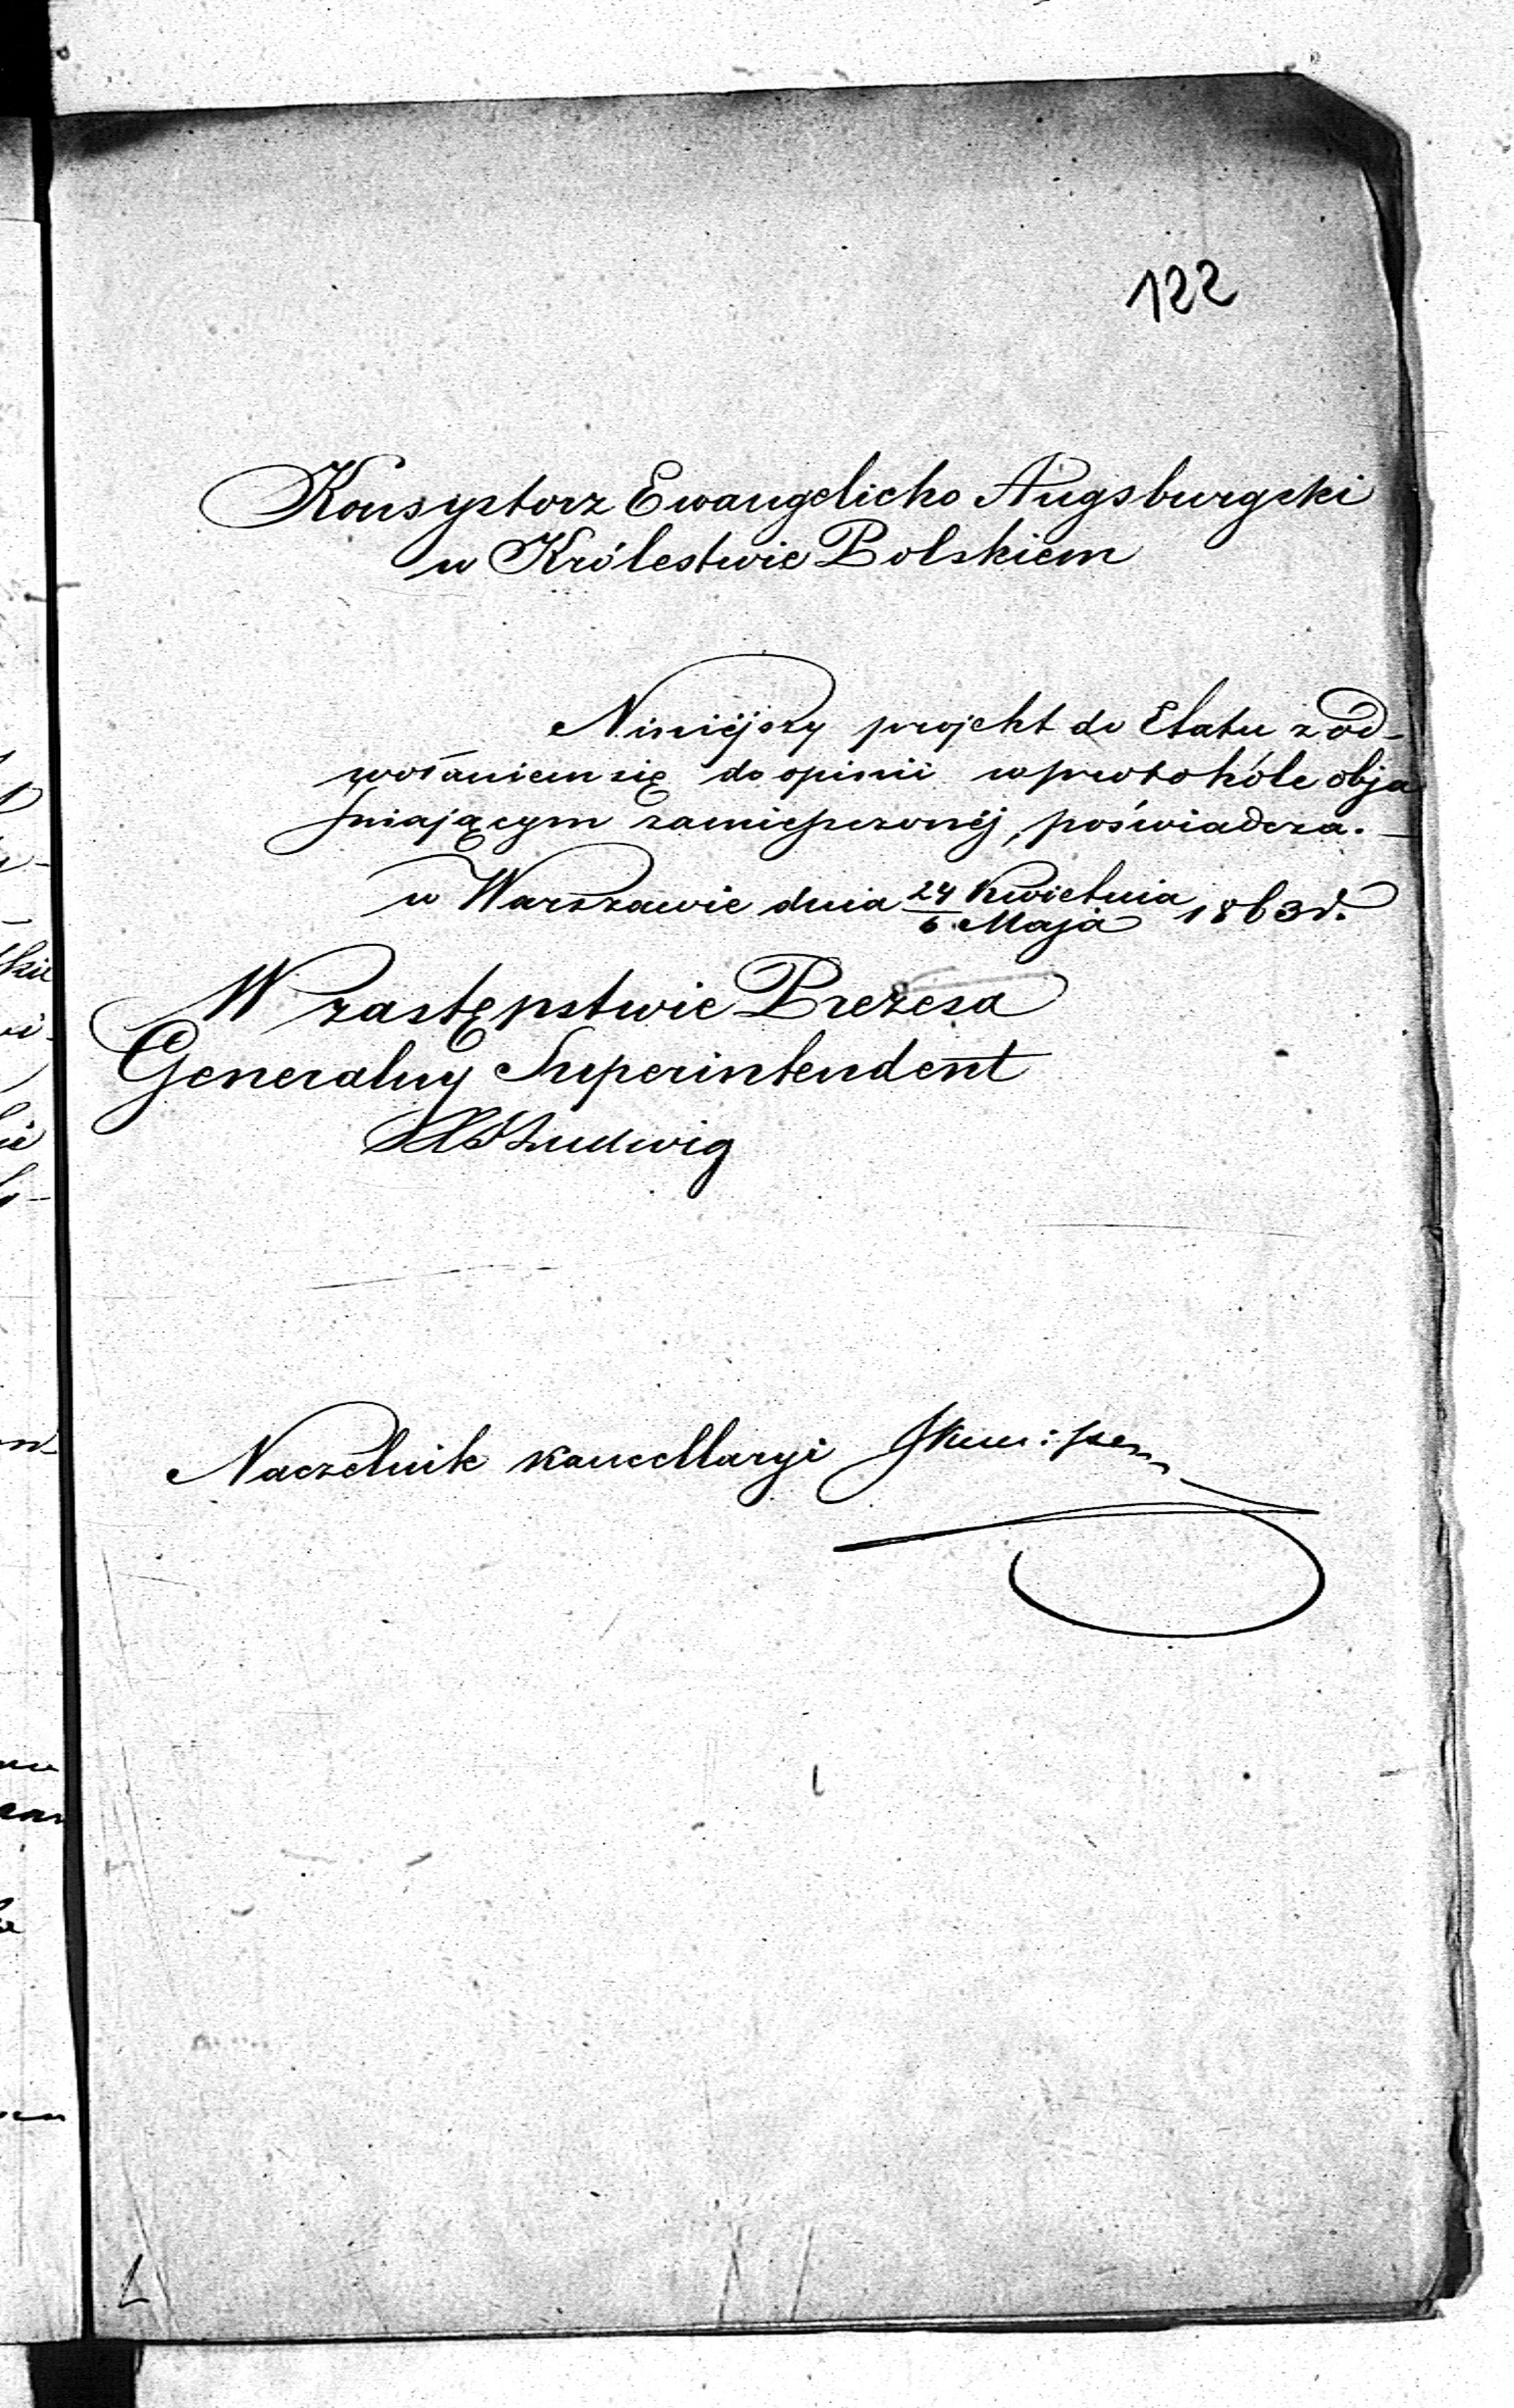 122
Konsystorz Ewangelicko Augsburgski
w Królestwie Polskiem
Niniéjszy projekt do Etatu z od-
wołaniem się do opinii w protokóle obja
śniającym zamieszczonéj, poświadcza.
w Warszawie dnia 24 Kwietnia / 6 Maja 1863 r.
W zastępstwie Prezesa
Generalny Superintendent
Ludwig
Naczelnik kancellaryi